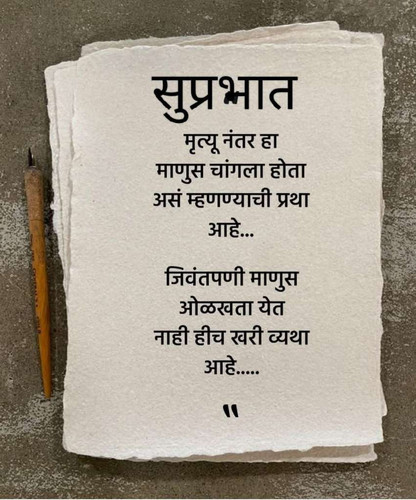 सुप्रभात
मृत्यू नंतर हा
माणुस चांगला होता
असं म्हणण्याची प्रथा
आहे...
जिवंतपणी माणुस
ओळखता येत
नाही हीच खरी व्यथा
आहे.....
"